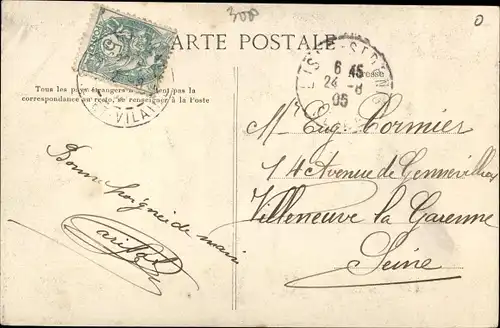 300
0
CARTE POSTALE
5
6 45
24 -8
05
Adresse
Tous les pays étrangers n' pas la
correspondance au recto, se renseigner à la Poste
ET-VILAI
M. Eug. Cormier
14 Avenue de Gennevilliers
Villeneuve la Garenne
Seine
Bonne poignée de main